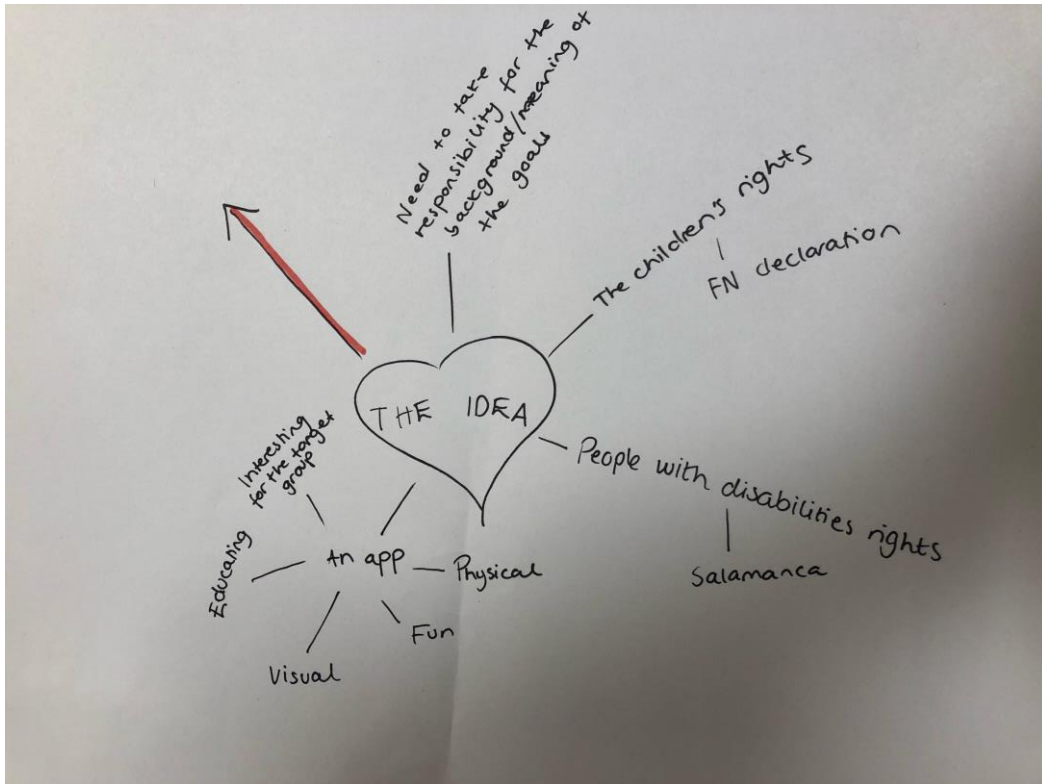 Need to take
responsibility for the
background/meaning of
the goals
The children's rights
FN declaration
THE IDEA
People with disabilities rights
Salamanca
Interesting
for the target
group
Educating
An app
Physical
Fun
Visual